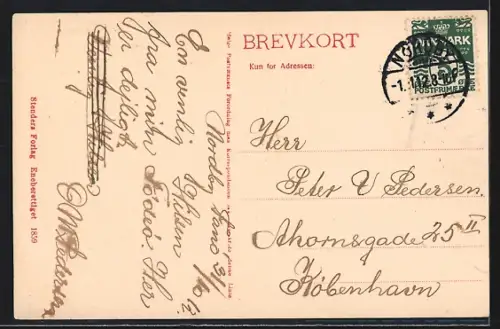 BREVKORT
Kun for Adressen:
DANMARK
POSTFRIMÆRKE
Herr
Peter V Pedersen.
Ahornsgade 25 II
København
Nordby Fanø 31/10 12
En venlig Hilsen
fra min Fødeø Her
Her er dejligt.
Venlig Hilsen
C M Pedersen
Stenders Forlag Eneberettiget 1859